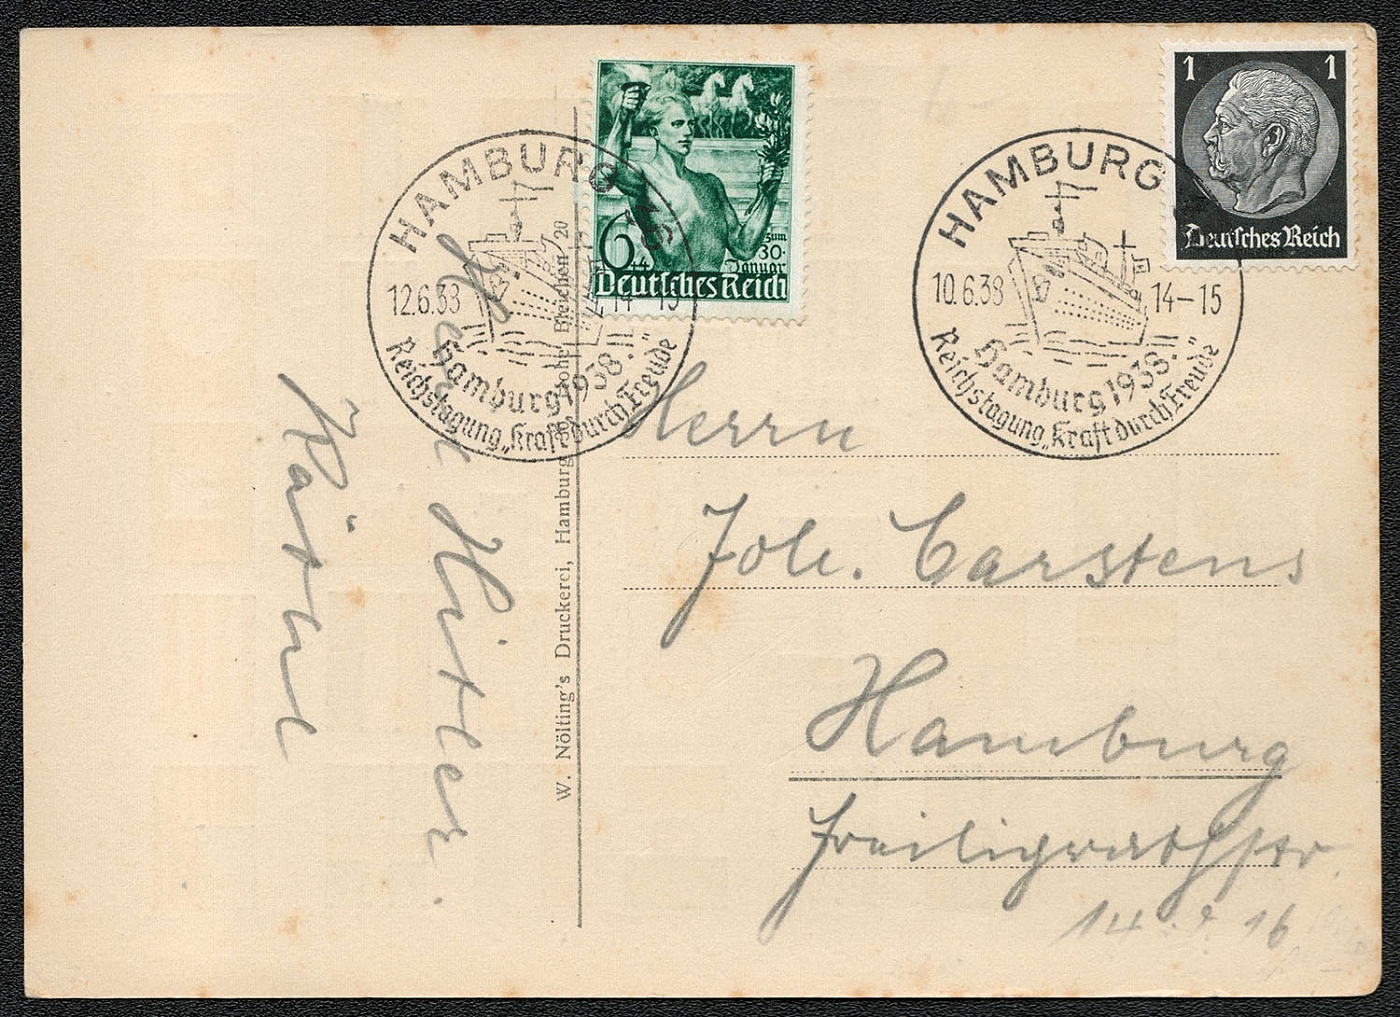 HAMBURG
12.6.38 14-15
Hamburg 1938.
Reichstagung „Kraft durch Freude"
6+4
zum
30.
Januar
Deutsches Reich
HAMBURG
10.6.38 14-15
Hamburg 1938.
Reichstagung „Kraft durch Freude"
1 1
Deutsches Reich
W. Nölting's Druckerei, Hamburg Hohe Bleichen 20
Heil Hitler.
Käthe
Herrn
Joh. Carstens
Hamburg
Freiligrathstr.
14 16